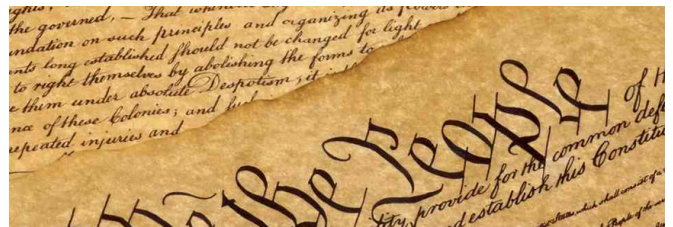 the governed, — That when
ndation on such principles and organizing its powers
nts long established should not be changed for light
to right themselves by abolishing the forms to
e them under absolute Despotism; it is
nce of these Colonies; and such
repeated injuries and
We the People
of th
ity, provide for the common defe
nd establish this Constitu
which shall consist of a
People of the